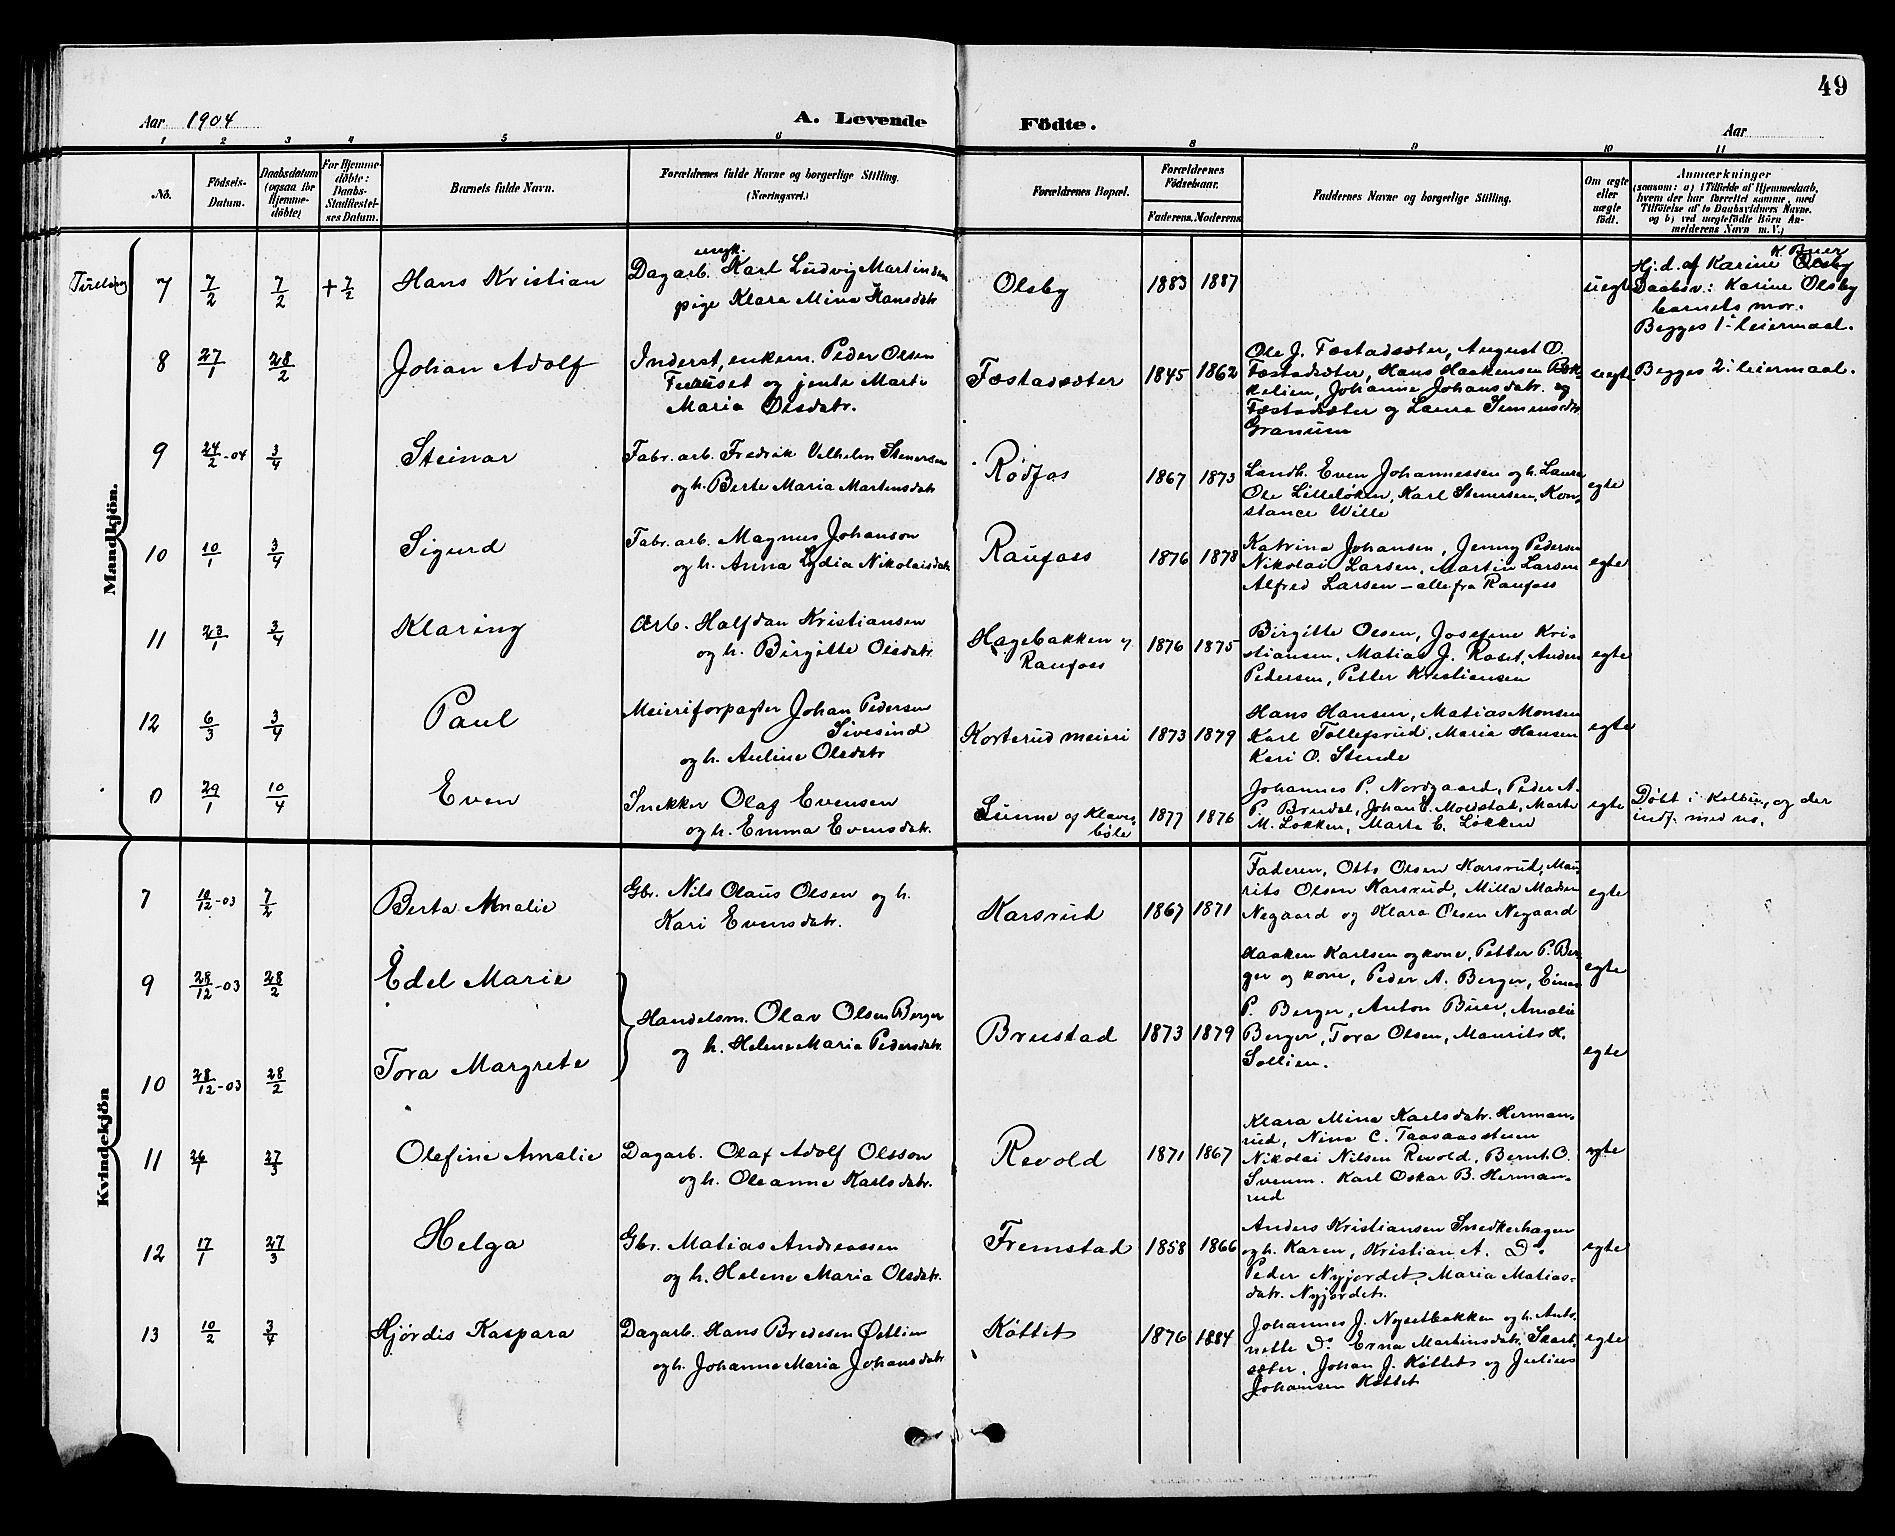 49
Aar 1904
A. Levende
Födte.
Aar
1 2 3 4 5 6 8 9 10 11
No.
Födsels-Datum.
Daabsdatum (ogsaa for Hjemmedöbte)
For Hjemmedöbte: Daabs-Stadfæstelses Datum.
Barnets fulde Navn.
Forældrenes fulde Navne og borgerlige Stilling. (Næringsvei.)
Forældrenes Bopæl.
Forældrenes Födselsaar.
Faderens. Moderens
Faddernes Navne og borgerlige Stilling.
Om ægte eller uægte født.
Anmærkninger
(saasom: a) i Tilfælde af Hjemmedaab,
hvem der har forrettet samme, med
Tilföielse af to Daabsvidners Navne.
og b) ved uægtefödte Börn An-
melderens Navn m. V.)
Mandkjön.
7 7/2 7/2 + 7/2 Hans Kristian
ungk.
Dagarb. Karl Ludvig Martinsen
pige Klara Mina Hansdatr
Olsby 1883 1887 uegte
K. Buer
Hj.d. af Karine Olsby
Daabsv.: Karine Olsby
barnets mor.
Begges 1ste leiermaal.
8 27/1 28/2 Johan Adolf
Inderst, enkem. Peder Olsen
og jente Marte
Maria Olsdatr.
Fæstadsæter 1845 1862
Ole J. Fæstadsæter, August O.
Fæstadsæter, Hans Haakensen Bak-
kelien, Johanne Johansdatr. og
Fæstadsæter og Laura Simensdtr
Granum
uegte Begges 2: leiermaal.
9 24/2-04 3/4 Steinar
Fabr. arb. Fredrik Vilhelm Stenersen
og h. Berte Maria Martinsdatr
Rødfos 1867 1873
Landh. Even Johannessen og h. Laura
Ole Lilleløken, Karl Stenersen, Kon-
stance Wille
egte
10 10/1 3/4 Sigurd
Fabr. arb. Magnus Johanson
og h. Anna Lydia Nikolaisdatr
Raufoss 1876 1878
Katrina Johansen, Jenny Pedersen
Nikolai Larsen, Martin Larsen
Alfred Larsen – alle fra Raufoss
egte
11 23/1 3/4 Klaring
Arb. Halfdan Kristiansen
og h. Birgitte Olsdatr.
Hagebakken
Raufoss
1876 1875
Birgitte Olsen, Josefine Kri-
stiansen, Matias J. Roset, Anders
Pedersen, Petter Kristiansen
egte
12 6/3 3/4 Paul
Meieriforpagter Johan Pedersen
Sivesind
og h. Auline Olsdatr
Korterud meieri 1873 1879
Hans Hansen, Matias Monsen
Karl Tollefsrud, Maria Hansen
Kari O. Stende
egte
0 29/1 10/4 Even
Snekker Olaf Evensen
og h. Emma Evensdatr.
Sunne af Klaver-
bøle
1877 1876
Johannes P. Nordgaard, Peder A.
P. Bredal, Johan E. Moldstad, Marte
M. Løkken, Marte E. Løkken
egte
Døbt i Kolbu, og der
indf. med no.
Kvindekjön
7 10/12-03 7/2 Berta Amalie
Gbr. Nils Olaus Olsen og h.
Kari Evensdatr.
Karsrud 1867 1871
Faderen, Otto Olsen Karsrud, Mau-
rits Olsen Karsrud, Milla Madsen
Negaard og Klara Olsen Negaard
egte
9 28/12-03 28/2 Edel Marie
10 28/12-03 28/2 Tora Margrete
Handelsm. Olav Olsen Berger
og h. Helene Maria Pedersdatr.
Brustad 1873 1879
Haaken Karlsen og kone, Petter P. Ber-
ger og kone, Peder A. Berger, Einar
P. Berger, Anton Buer, Amalie
Berger, Tora Olsen, Maurits H.
Sollien.
egte
egte
11 27/3 Olefine Amalie
Dagarb. Olaf Adolf Olsson
og h. Oleanne Karlsdatr.
Revold 1871 1867
Klara Mina Karlsdatr. Herman-
rud, Nina C. Taasaasstuen
Nikolai Nilsen Revold, Bernt O.
Sveum. Karl Oskar B. Herman-
rud
egte
12 17/1 27/3 Helga
Gbr. Matias Andreassen
og h. Helene Maria Olsdatr.
Fremstad 1858 1866
Anders Kristiansen Snedkerhagen
og h. Karen, Kristian A. Do
Peder Nyjordet, Maria Matias-
datr. Nyjordet.
egte
13 10/2 3/4 Hjørdis Kaspara
Dagarb. Hans Bredesen Østlien
og h. Johanne Maria Johansdatr
Køttet 1876 1884
Johannes J. Nysetbakken og h. Anto-
nette Do Erna Martinsdatr. Skart-
sæter, Johan J. Køttet og Julius
Johansen Køttet
egte